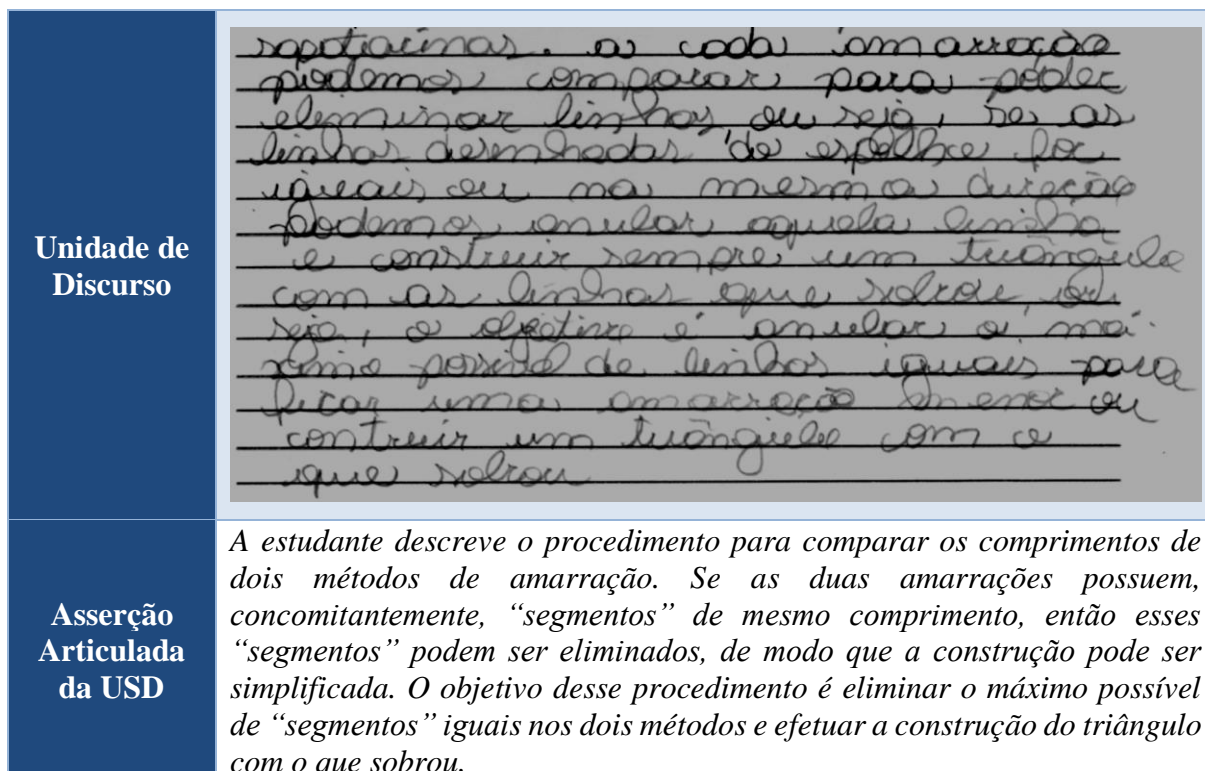 Unidade de
Discurso
a cada amarração
podemos comparar para poder
eliminar linhas ou seja, se as
linhas desenhadas do espelho for
iguais ou na mesma direção
podemos anular aquela linha
e construir sempre um triângulo
com as linhas que sobrou ou
seja, o objetivo é anular o má-
ximo possivel de linhas iguais para
ficar uma amarração menor ou
contruir um triângulo com o
que sobrou
Asserção
Articulada
da USD
A estudante descreve o procedimento para comparar os comprimentos de
dois métodos de amarração. Se as duas amarrações possuem,
concomitantemente, “segmentos” de mesmo comprimento, então esses
“segmentos” podem ser eliminados, de modo que a construção pode ser
simplificada. O objetivo desse procedimento é eliminar o máximo possível
de “segmentos” iguais nos dois métodos e efetuar a construção do triângulo
com o que sobrou.